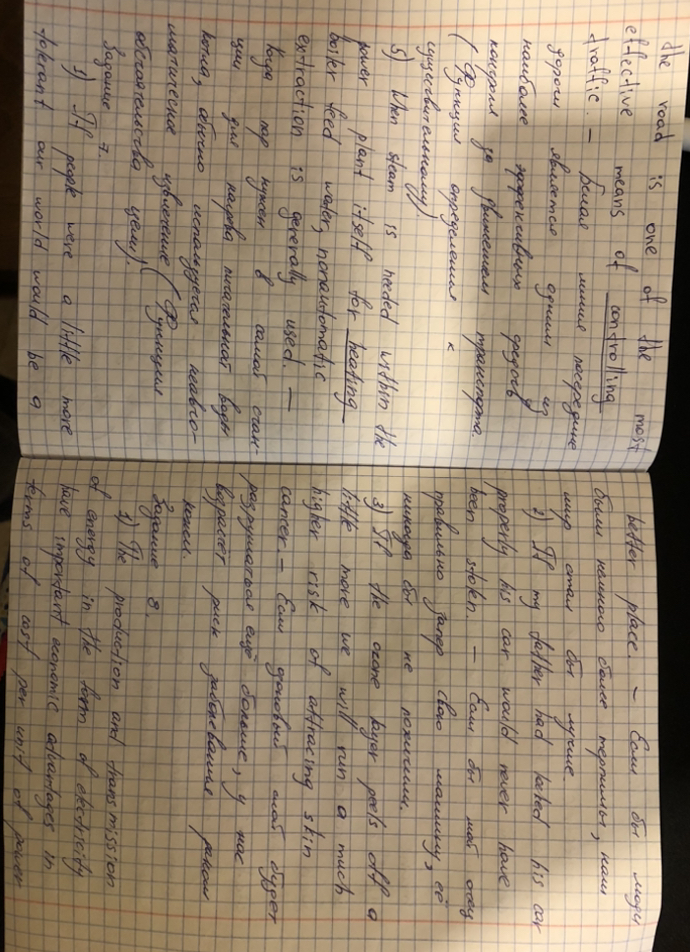 the road is one of the most
effective means of controlling
traffic. — Белая линия посередине
дороги является одним из
наиболее эффективных средств
контроля за движением транспорта.
(Функция определения к
существительному).
5) When steam is needed within the
power plant itself for heating
boiler feed water, nonautomatic
extraction is generally used. —
Когда пар нужен в самой стан-
ции для нагрева питательной воды
котла, обычно используется неавто-
матическое извлечение (Функция
обстоятельства цели).
Задание 7.
1) If people were a little more
tolerant our world would be a
better place. — Если бы люди
были немного более терпимы, наш
мир стал бы лучше.
2) If my father had locked his car
properly his car would never have
been stolen. — Если бы мой отец
правильно запер свою машину, её
никогда бы не похитили.
3) If the ozone layer peels off a
little more we will run a much
higher risk of attracing skin
cancer. — Если озоновый слой будет
разрушаться ещё больше, у нас
возрастёт риск заболевания раком
кожи.
Задание 8.
1) The production and transmission
of energy in the form of electricity
have important economic advantages in
terms of cost per unit of power